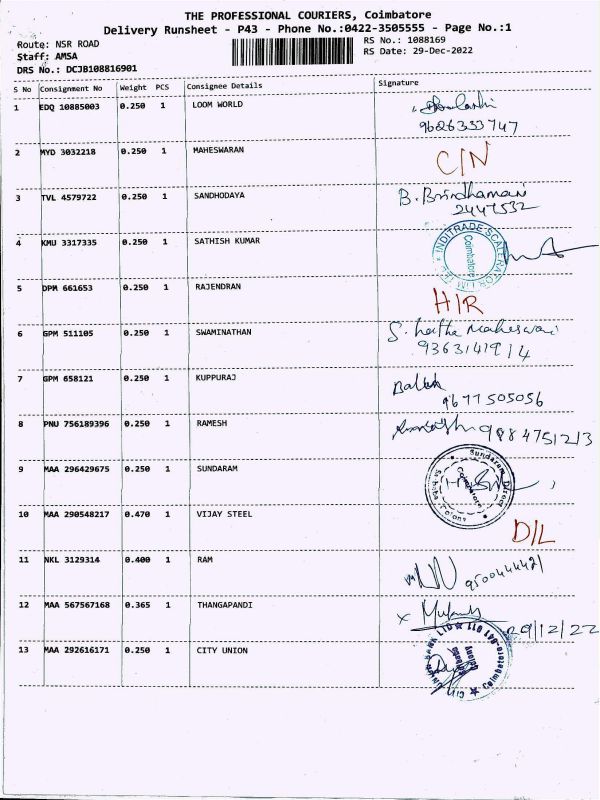 THE PROFESSIONAL COURIERS, Coimbatore
Delivery Runsheet - P43 - Phone No.:0422-3505555 - Page No.:1
Route: NSR ROAD RS No.: 1088169
Staff: AMSA RS Date: 29-Dec-2022
DRS No.: DCJB108816901
S No Consignment No Weight PCS Consignee Details Signature
1 EDQ 10885003 0.250 1 LOOM WORLD
9626333747
2 MYD 3032218 0.250 1 MAHESWARAN C/N
3 TVL 4579722 0.250 1 SANDHODAYA B. Brindhamani
2447532
4 KMU 3317335 0.250 1 SATHISH KUMAR INDITRADE SCALERATOR LIMITED Coimbatore
5 DPM 661653 0.250 1 RAJENDRAN H/R
6 GPM 511105 0.250 1 SWAMINATHAN S. Latha Maheswari
9363141914
7 GPM 658121 0.250 1 KUPPURAJ
9677505056
8 PNU 756189396 0.250 1 RAMESH 9884751213
9 MAA 296429675 0.250 1 SUNDARAM Sundaram Direct Coimbatore
10 MAA 290548217 0.470 1 VIJAY STEEL D/L
11 NKL 3129314 0.400 1 RAM
12 MAA 567567168 0.365 1 THANGAPANDI 29/12/22
13 MAA 292616171 0.250 1 CITY UNION Coimbatore-641 011